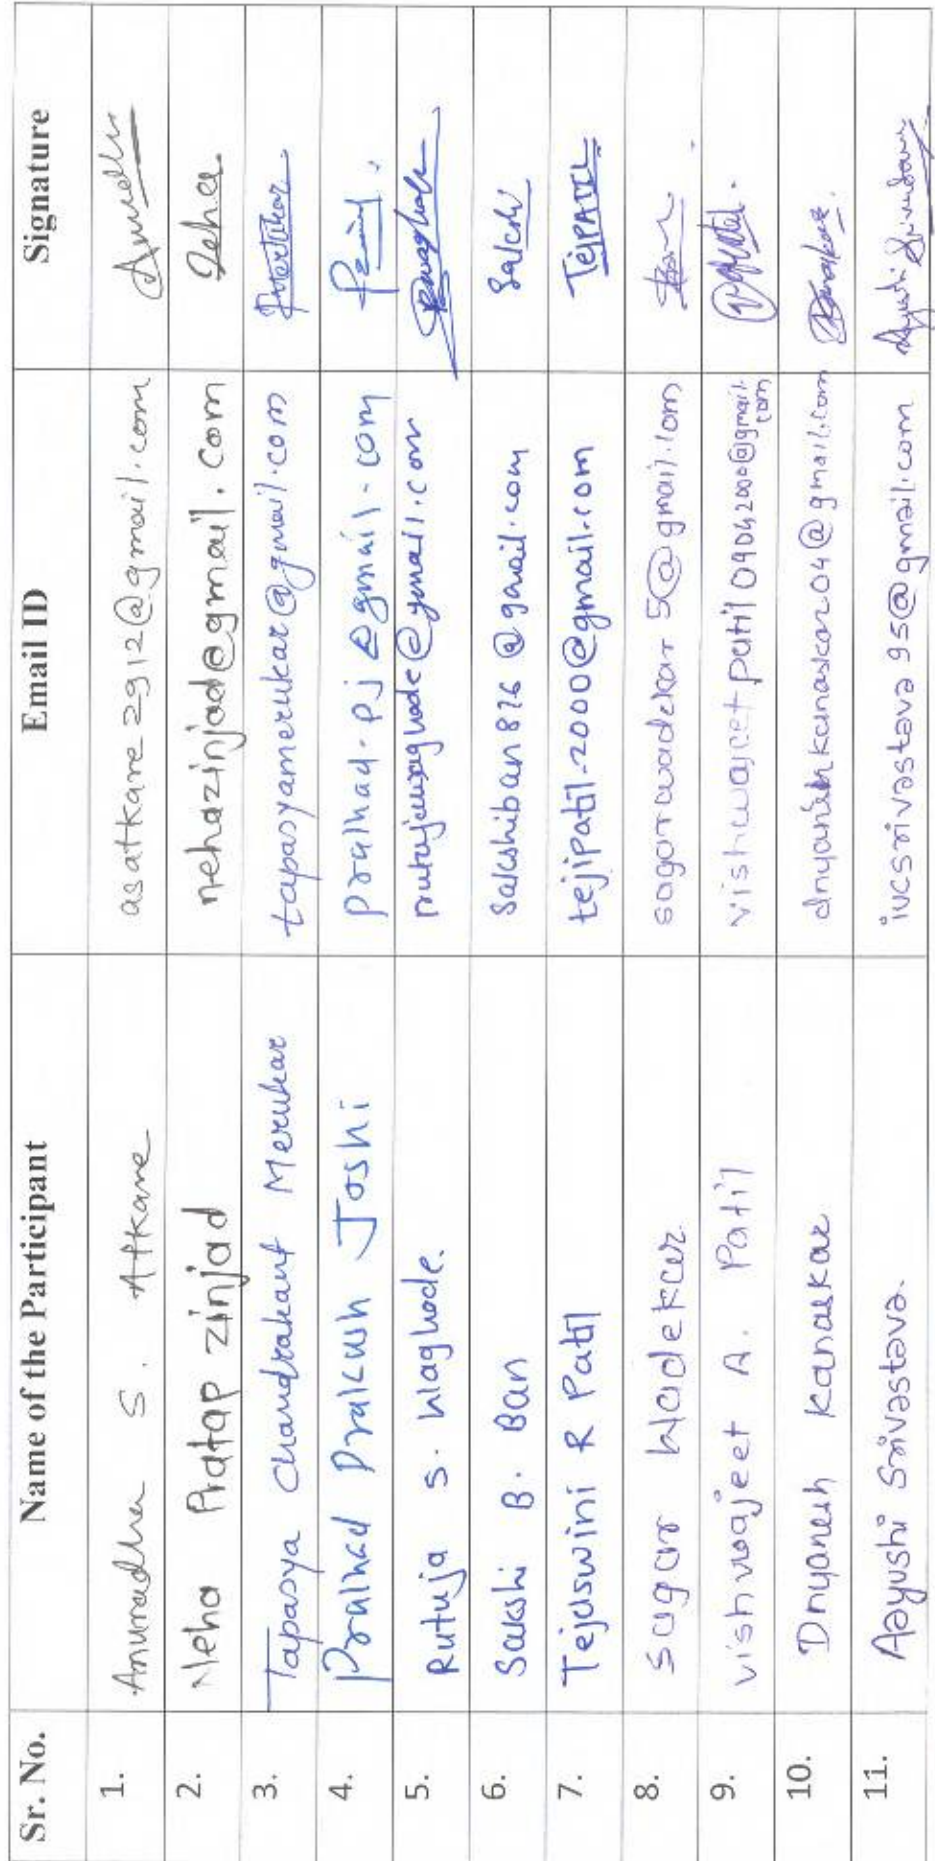 Sr. No. Name of the Participant Email ID Signature
1. Anuradha S. Atkare asatkare2912@gmail.com
2. Neha Pratap Zinjad nehazinjad@gmail.com Neha
3. Tapasya Chandrakant Merukar tapasyamerukar@gmail.com
4. Pralhad Prakash Joshi pralhad.pj@gmail.com
5. Rutuja S. Waghode. rutujawaghode@gmail.com
6. Sakshi B. Ban Sakshiban826@gmail.com Sakshi
7. Tejaswini R Patil tejipatil.2000@gmail.com TejPATIL
8. Sagar Wadekar sagarwadekar5@gmail.com
9. Vishwajeet A. Patil vishwajeetpatil09042000@gmail.
com
10. Dnyanesh Kanaskar dnyaneshkanaskar204@gmail.com
11. Aayushi Srivastava. iucsrivastava95@gmail.com Aayushi Srivastava